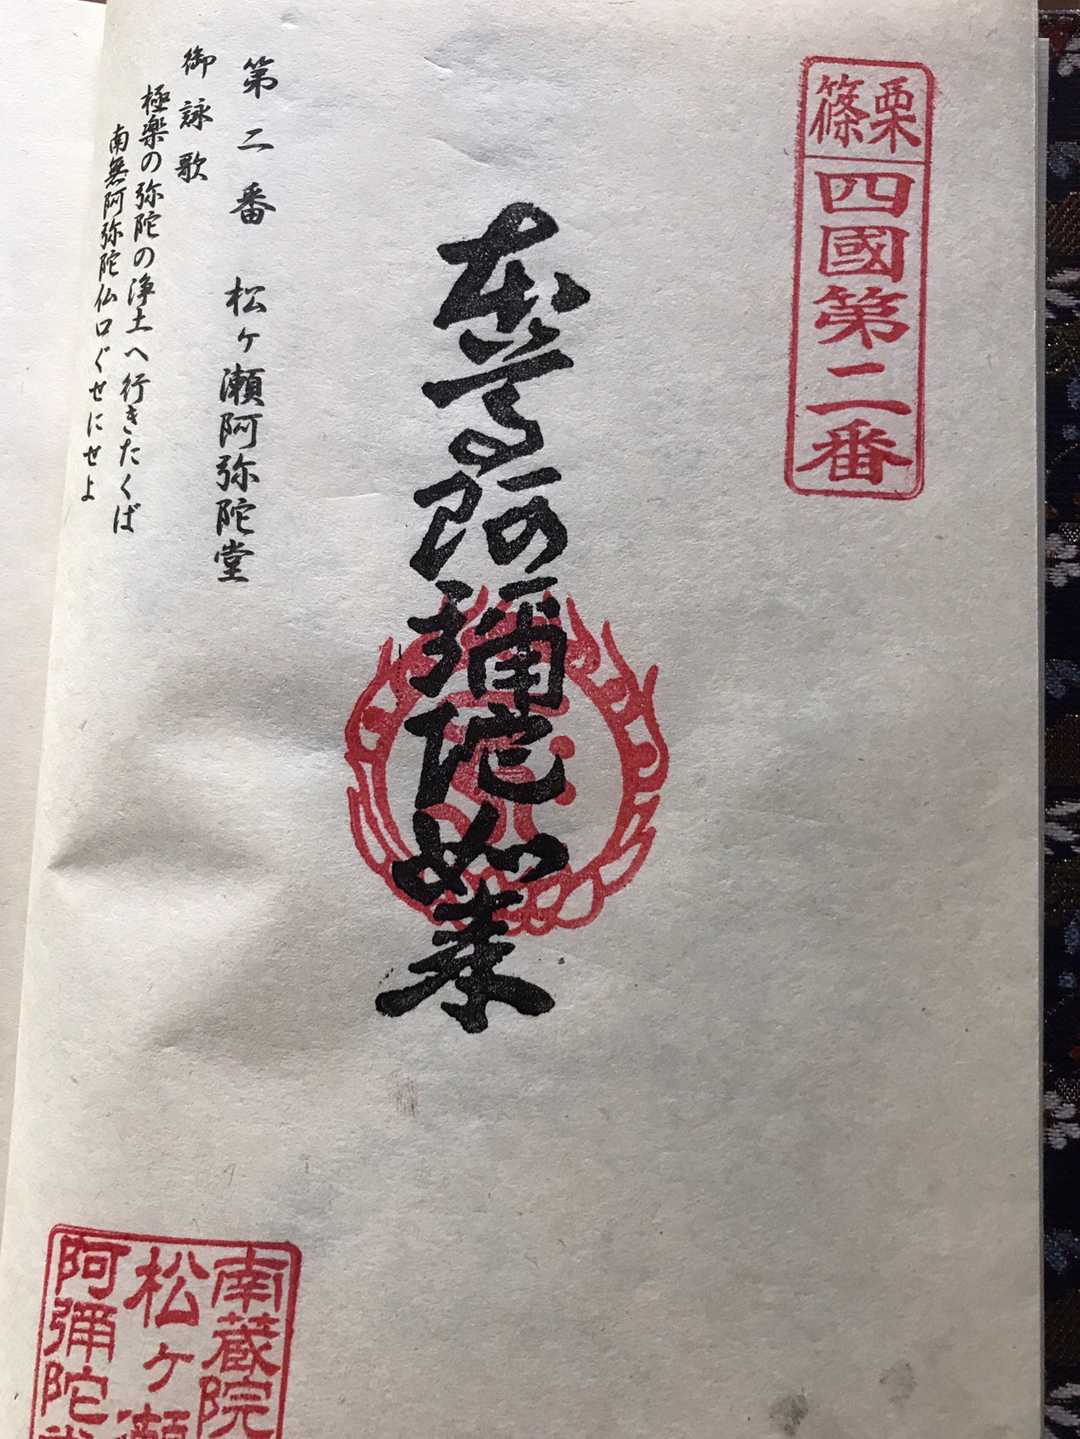 篠栗
四國第二番
本尊阿彌陀如来
第二番 松ヶ瀬阿弥陀堂
御詠歌
極楽の弥陀の浄土へ行きたくば
南無阿弥陀仏口ぐせにせよ
南蔵院
松ヶ瀬
阿彌陀